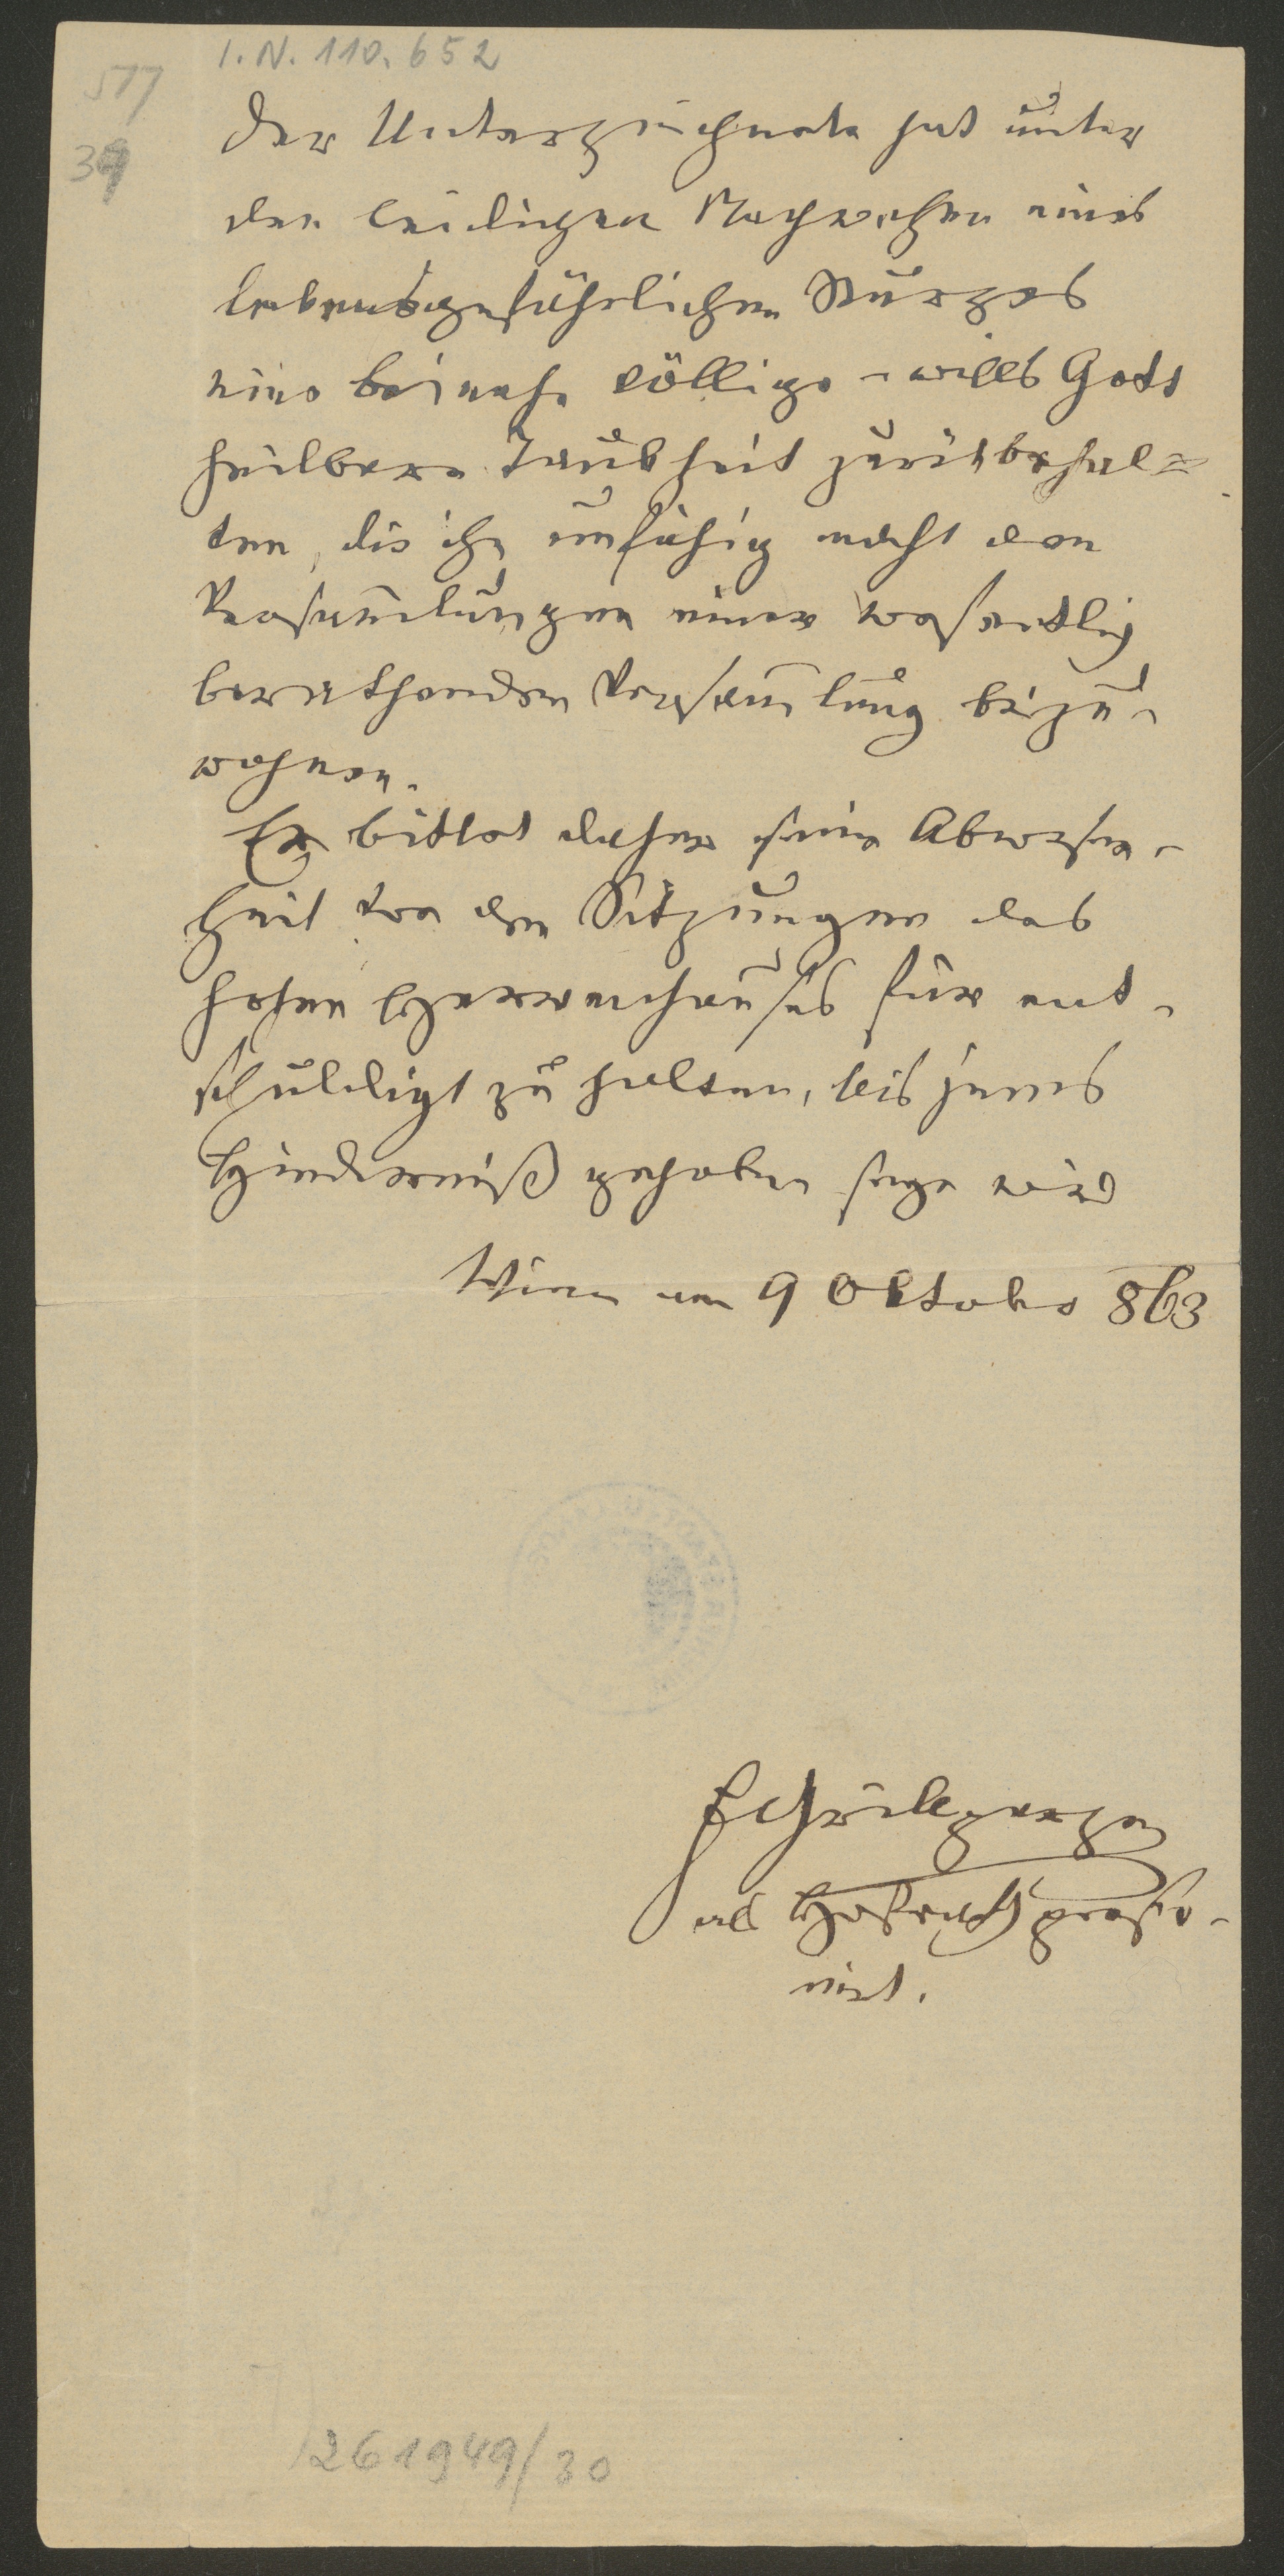 I. N. 110.652
517
39
Der Unterzeichnete hat unter
den leidigen Nachwehen eines
lebensgefährlichen Sturzes
eine beinahe völlige - wills Gott
heilbare Taubheit zurückbehal=
ten, die ihn unfähig macht den
Versamlungen einer wesentlich
berathenden Versamlung beizu-
wohnen.
Er bittet daher seine Abwesen-
heit von den Sitzungen des
hohen Herrenhauses für ent-
schuldigt zu halten, bis jenes
Hinderniß gehoben seyn wird
Wien am 9 Oktober 863
FGrillparzer
als Hofrath pensio-
nirt.
261949/30